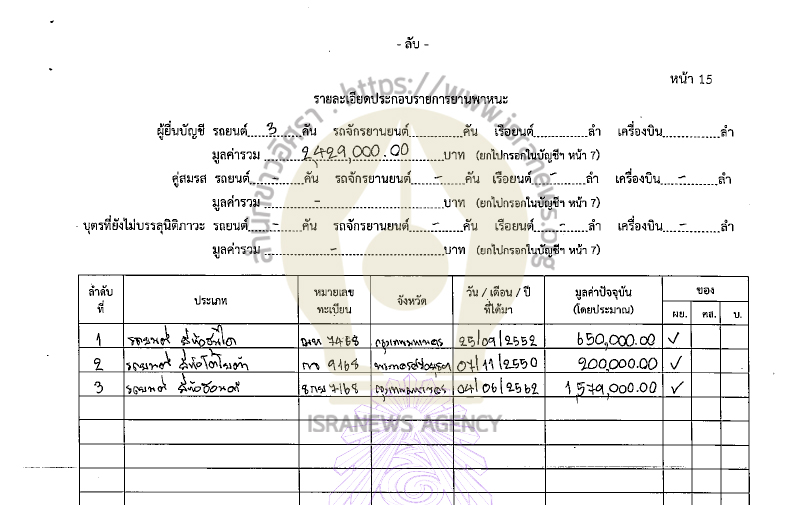 - ลับ -
หน้า 15
รายละเอียดประกอบรายการยานพาหนะ
ผู้ยื่นบัญชี รถยนต์ 3 คัน รถจักรยานยนต์ คัน เรือยนต์ ลำ เครื่องบิน ลำ
มูลค่ารวม 2,429,000.00 บาท (ยกไปกรอกในบัญชีฯ หน้า 7)
คู่สมรส รถยนต์ - คัน รถจักรยานยนต์ - คัน เรือยนต์ - ลำ เครื่องบิน - ลำ
มูลค่ารวม - บาท (ยกไปกรอกในบัญชีฯ หน้า 7)
บุตรที่ยังไม่บรรลุนิติภาวะ รถยนต์ - คัน รถจักรยานยนต์ - คัน เรือยนต์ - ลำ เครื่องบิน - ลำ
มูลค่ารวม - บาท (ยกไปกรอกในบัญชีฯ หน้า 7)
ลำดับที่ ประเภท หมายเลขทะเบียน จังหวัด วัน / เดือน / ปี ที่ได้มา มูลค่าปัจจุบัน (โดยประมาณ) ของ
ผย. คส. บ.
1 รถยนต์ 7468 กรุงเทพมหานคร 25/09/2552 650,000.00 ✓
2 รถยนต์ ยี่ห้อโตโยต้า 9168 พระนครศรีอยุธยา 07/11/2550 200,000.00 ✓
3 รถยนต์ ยี่ห้อ 7168 กรุงเทพมหานคร 04/06/2562 1,579,000.00 ✓
สำนักข่าวอิศรา : https://www.isranews.org
ISRANEWS AGENCY